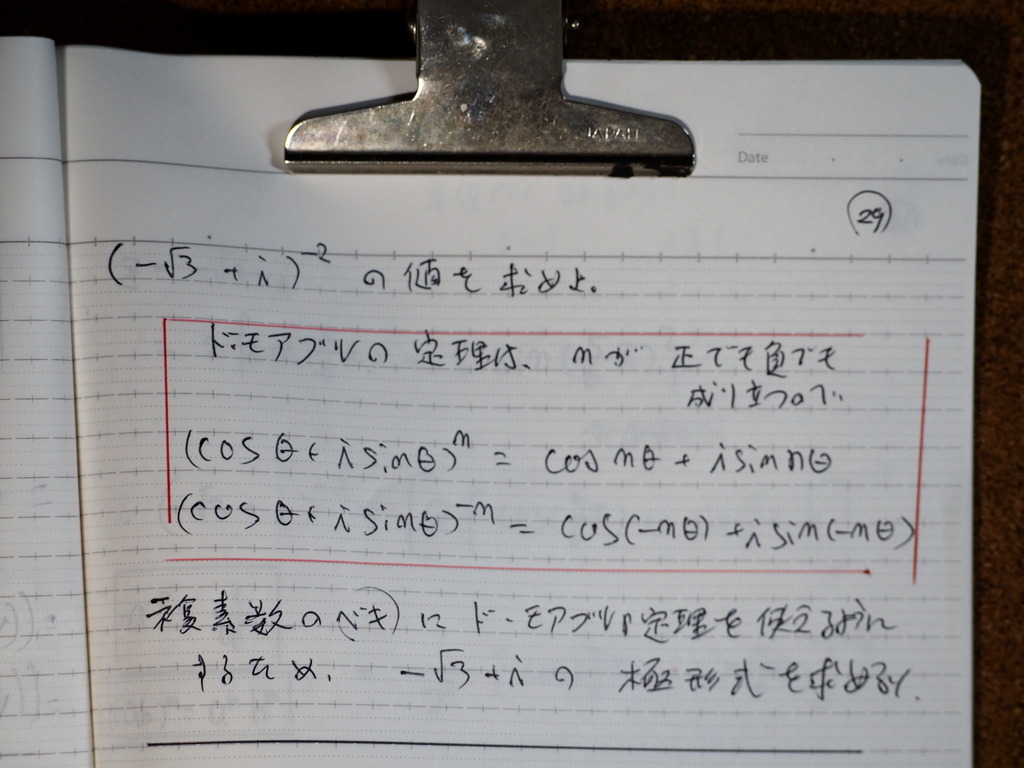 JAPAN
Date
29
(-√3 + i)⁻² の値を求めよ。
ド・モアブルの定理は、nが正でも負でも
成り立つので、
(cosθ + i sinθ)ⁿ = cos nθ + i sin nθ
(cosθ + i sinθ)⁻ⁿ = cos(-nθ) + i sin(-nθ)
複素数のベキにド・モアブルの定理を使えるように
するため、-√3 + i の極形式を求める。